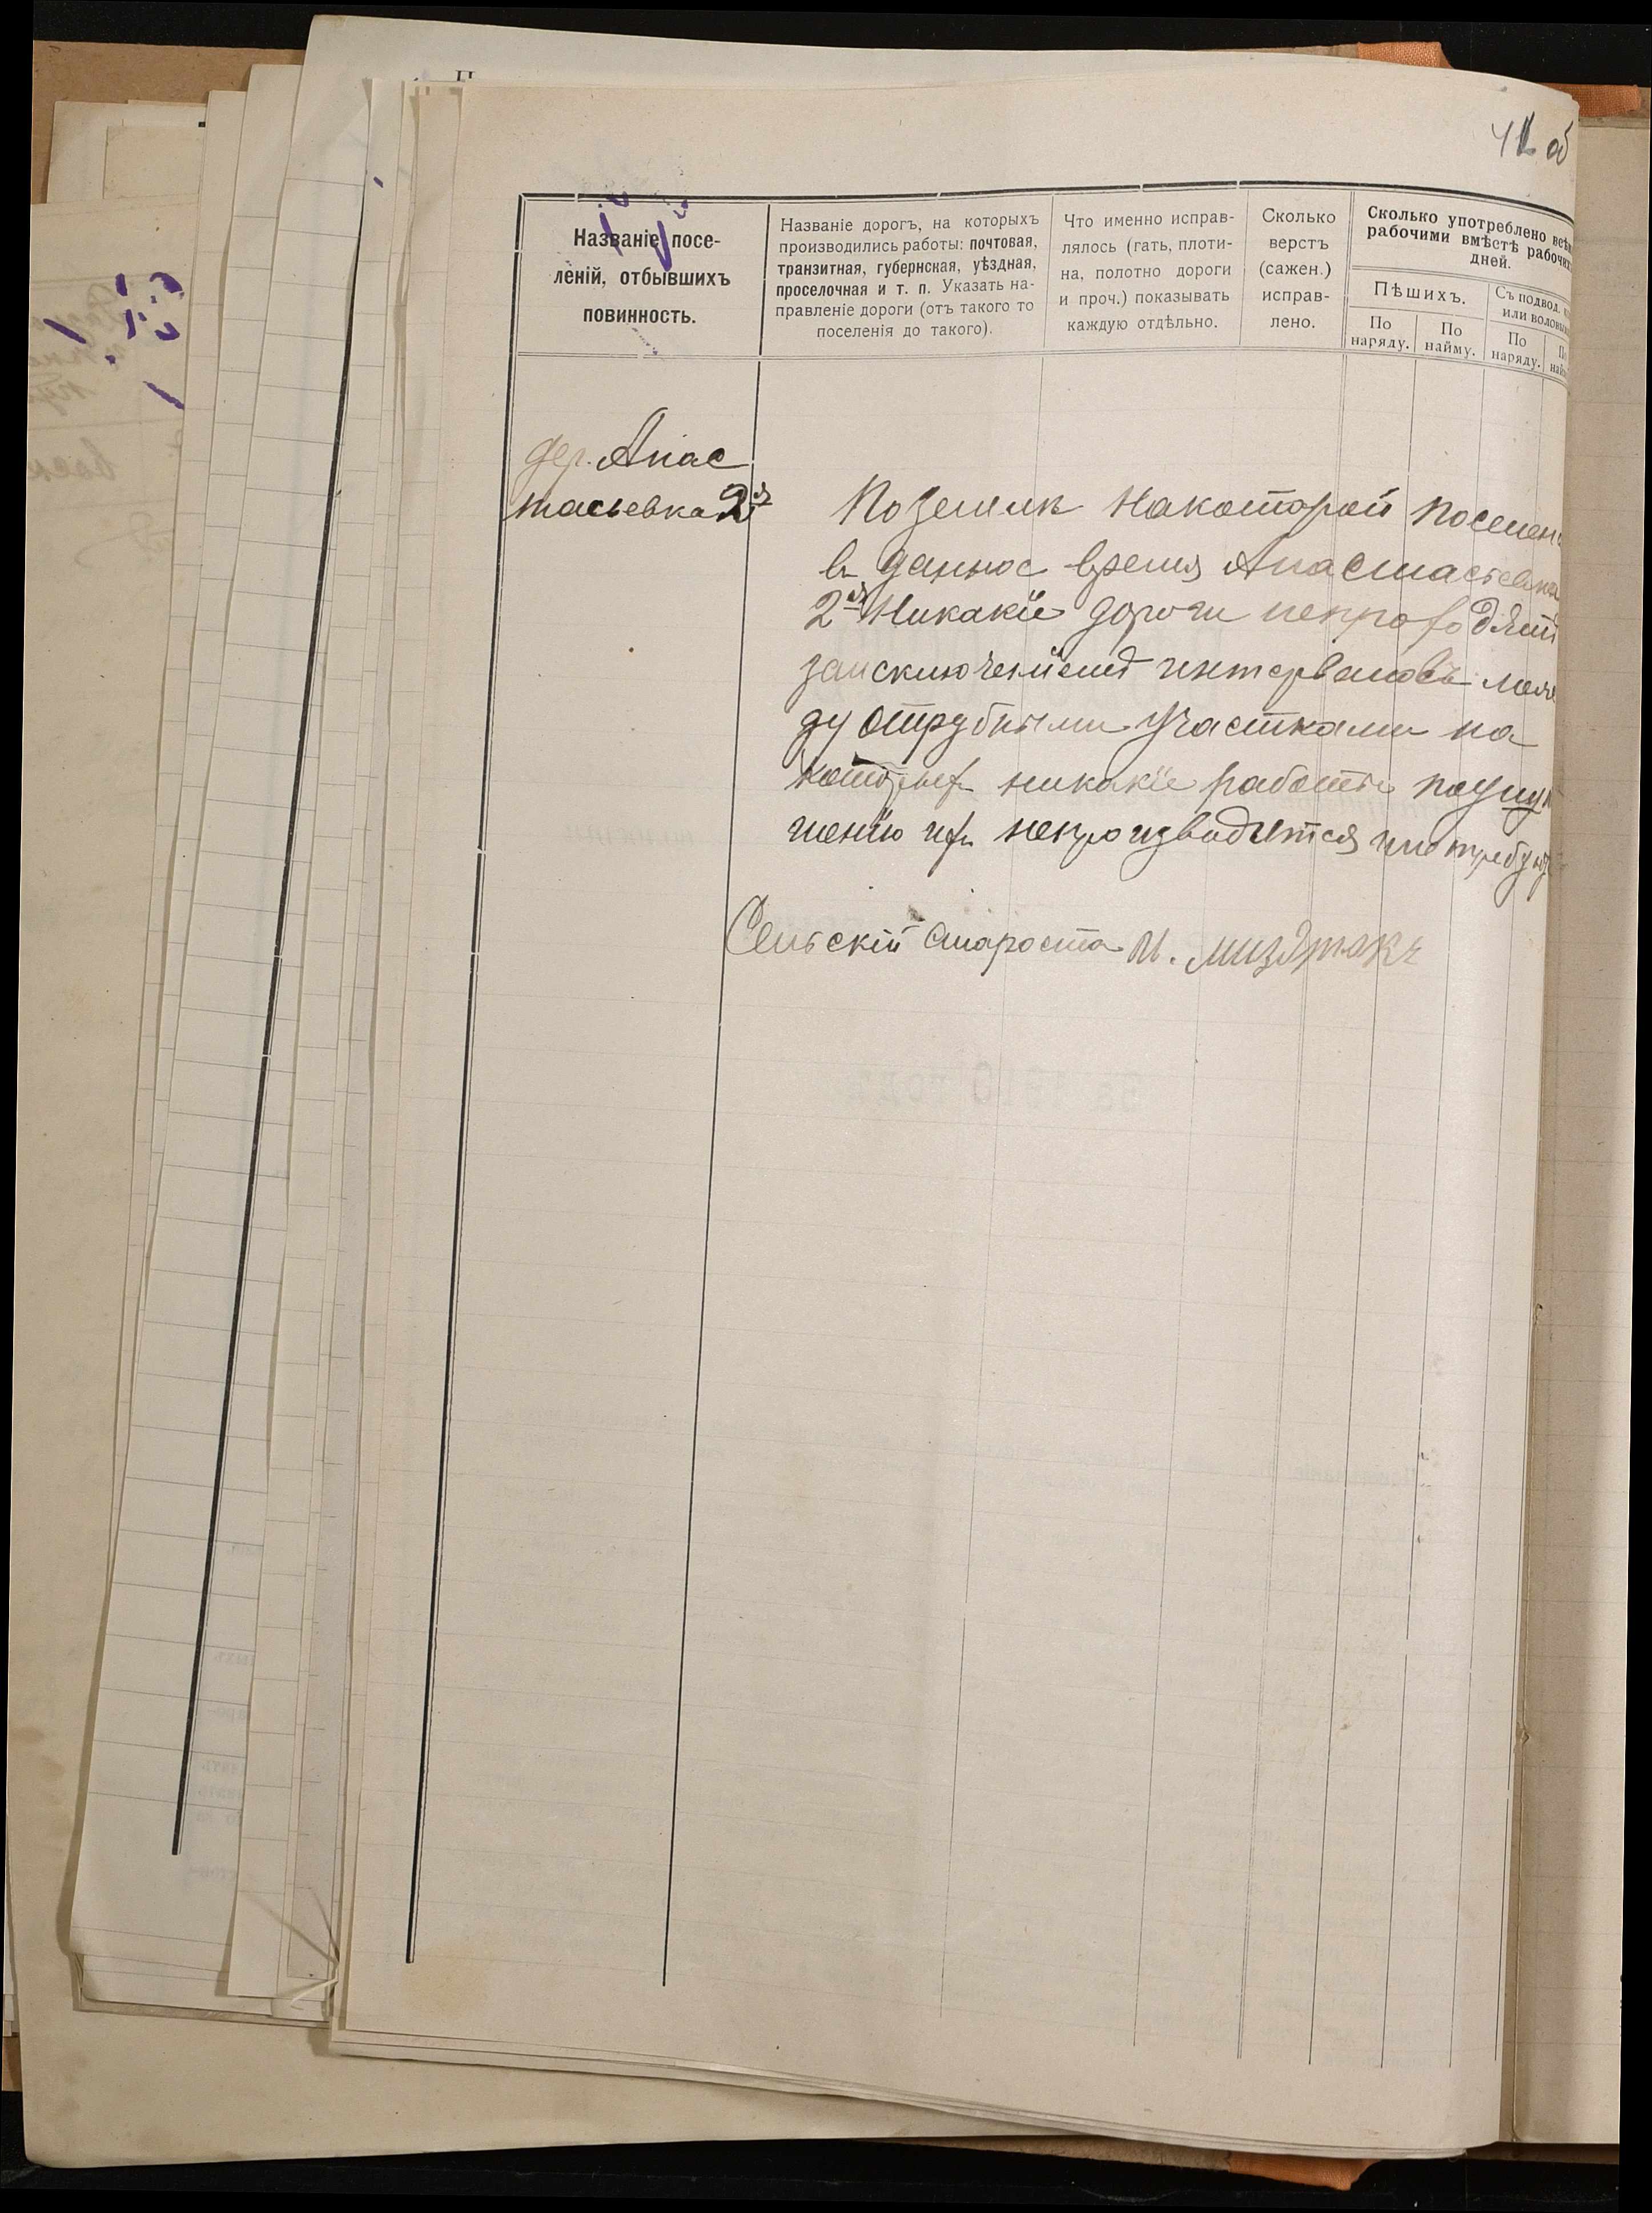 41 об
Названіе посе-
леній, отбывшихъ
повинность.
Названіе дорогъ, на которыхъ
производились работы: почтовая,
транзитная, губернская, уѣздная,
проселочная и т. п. Указать на-
правленіе дороги (отъ такого то
поселенія до такого).
Что именно исправ-
лялось (гать, плоти-
на, полотно дороги
и проч.) показывать
каждую отдѣльно.
Сколько
верстъ
(сажен.)
исправ-
лено.
Сколько употреблено всѣм
рабочими вмѣстѣ рабочих
дней.
Пѣшихъ.
Съ подвод.
или воловым
По
наряду.
По
найму.
По
наряду.
По
най
дер. Анас
тасьевка 2я
По землѣ на которой поселен
въ данное время Анастасьевка
2я Никакіе дороги непроходятъ
заисключеніемъ интерваловъ меж
ду отрубными участками на
которыхъ никакіе работы поулуч
шенію ихъ непроизводится и не требую
Сельскій староста И.
за 1910 годъ